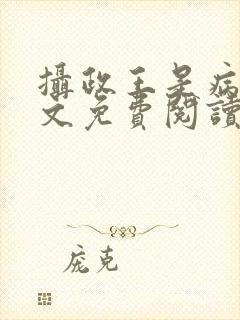 攝政王是病
文免費閱讀
庞克